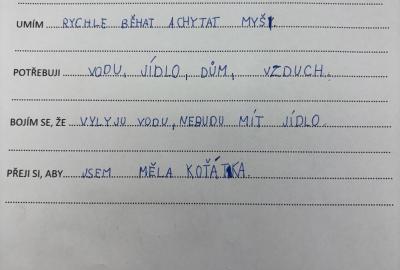 UMÍM RYCHLE BĚHAT A CHYTAT MYŠI.
POTŘEBUJI VODU, JÍDLO, DŮM, VZDUCH.
BOJÍM SE, ŽE VYLYJU VODU, NEBUDU MÍT JÍDLO.
PŘEJI SI, ABY JSEM MĚLA KOŤÁTKA.